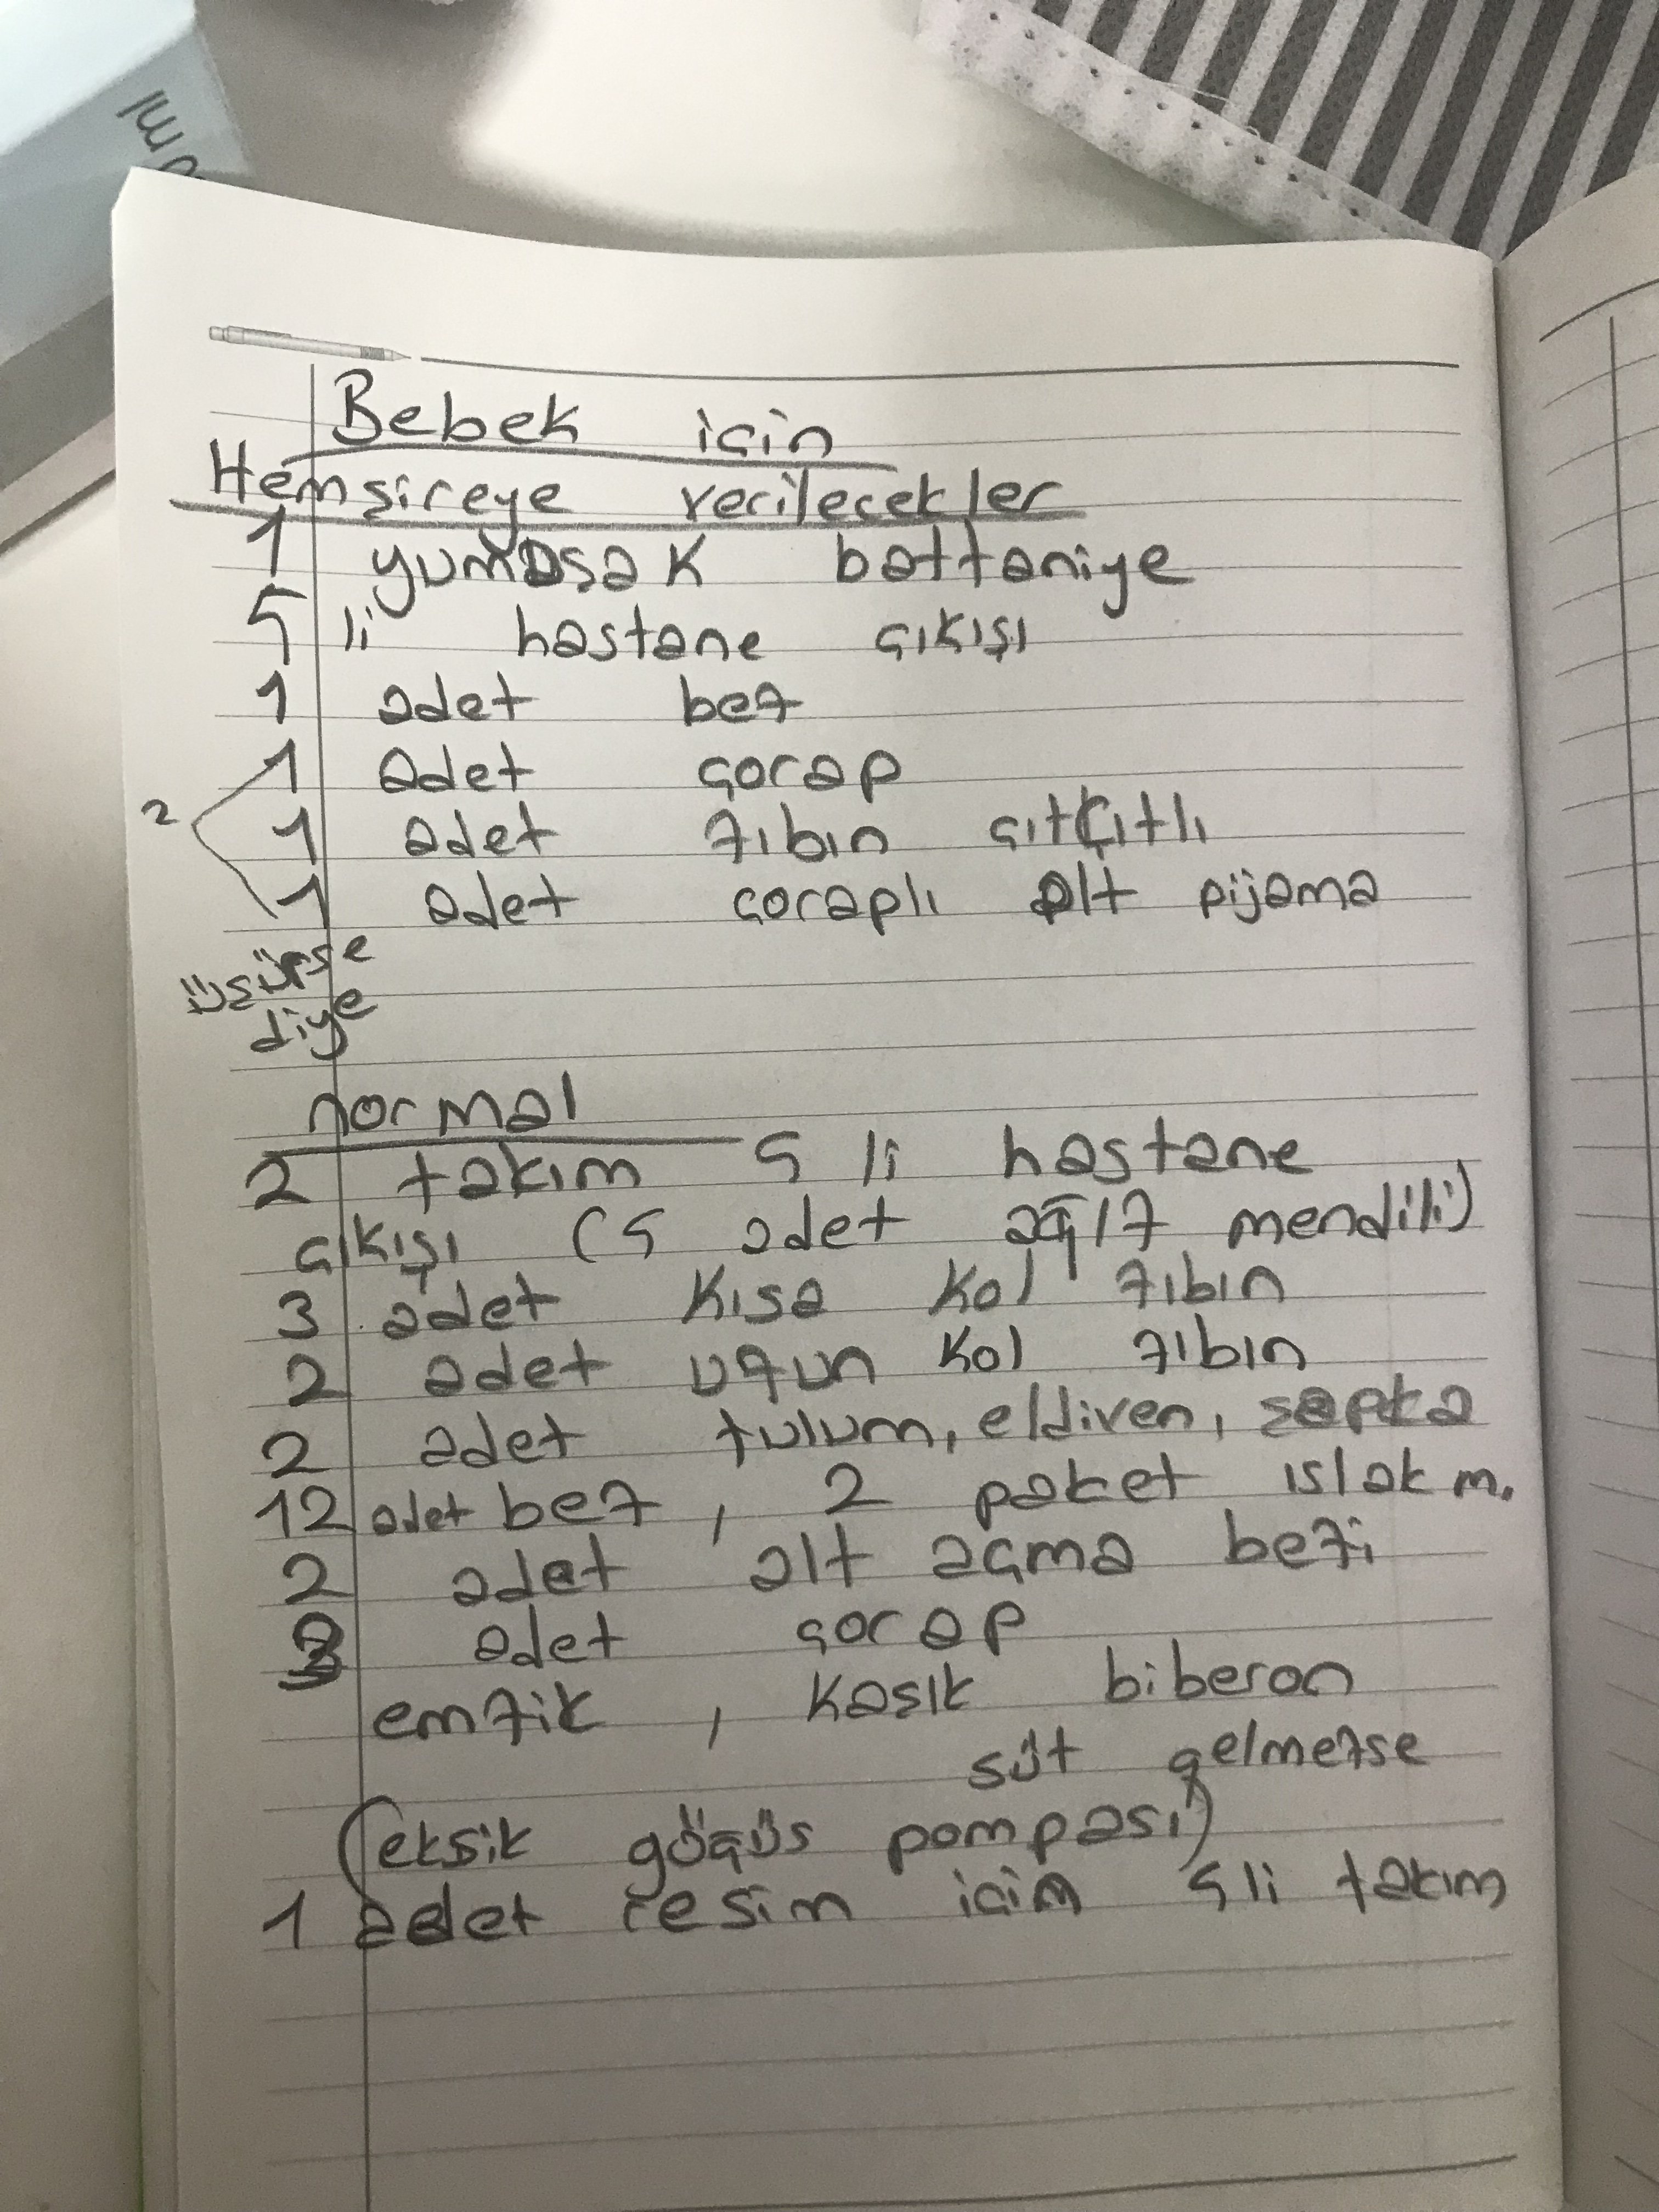 ml
Bebek için
Hemşireye verilecekler
1 yumuşak battaniye
5 li hastane çıkışı
1 adet bez
1 adet çorap
2 1 adet zıbın çıtçıtlı
1 adet çoraplı alt pijama
üşürse
diye
normal
2 takım 5 li hastane
çıkışı (5 adet ağız mendili)
3 adet kısa kol zıbın
2 adet uzun kol zıbın
2 adet tulum, eldiven, şapka
12 adet bez, 2 paket ıslak m.
2 adet alt açma bezi
3 adet çorap
emzik, kaşık biberon
süt gelmezse
(eksik göğüs pompası)
1 adet resim için 5li takım